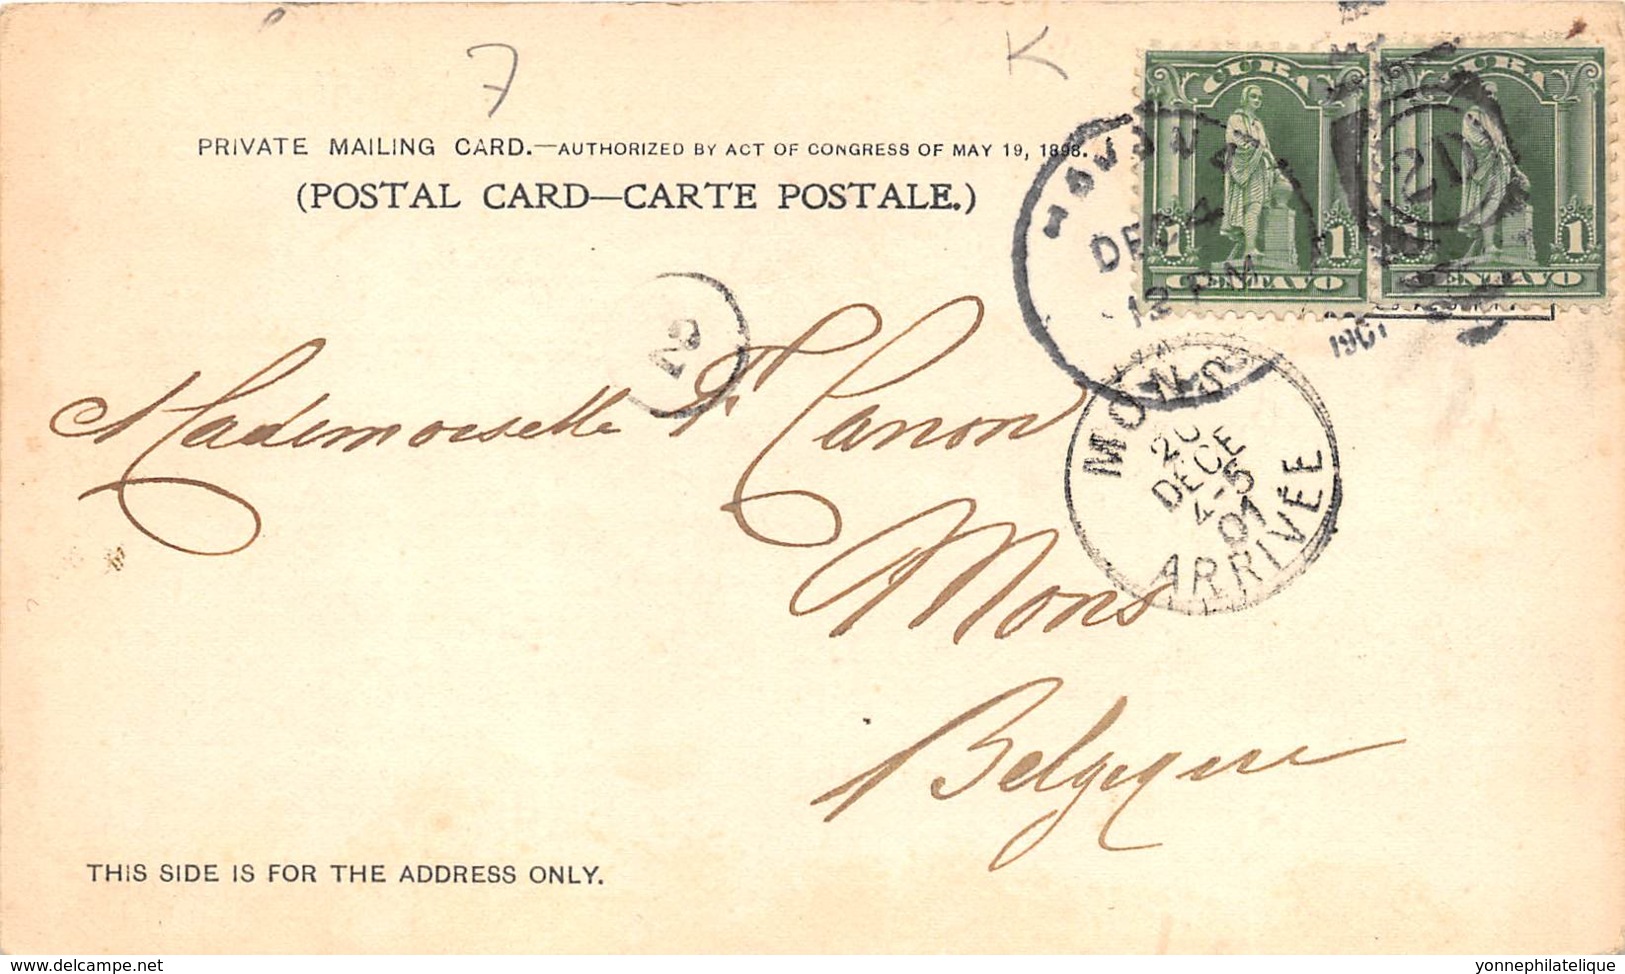 7
K
PRIVATE MAILING CARD.—AUTHORIZED BY ACT OF CONGRESS OF MAY 19, 1898.
(POSTAL CARD—CARTE POSTALE.)
CUBA
1 1
CENTAVO
CUBA
1
CENTAVO
2D
DEC 4
12 PM
1901
2
MONS
20
DECE
4-5
01
ARRIVÉE
Mademoiselle Canon
Mons
Belgique
THIS SIDE IS FOR THE ADDRESS ONLY.
www.delcampe.net
yonnephilatelique